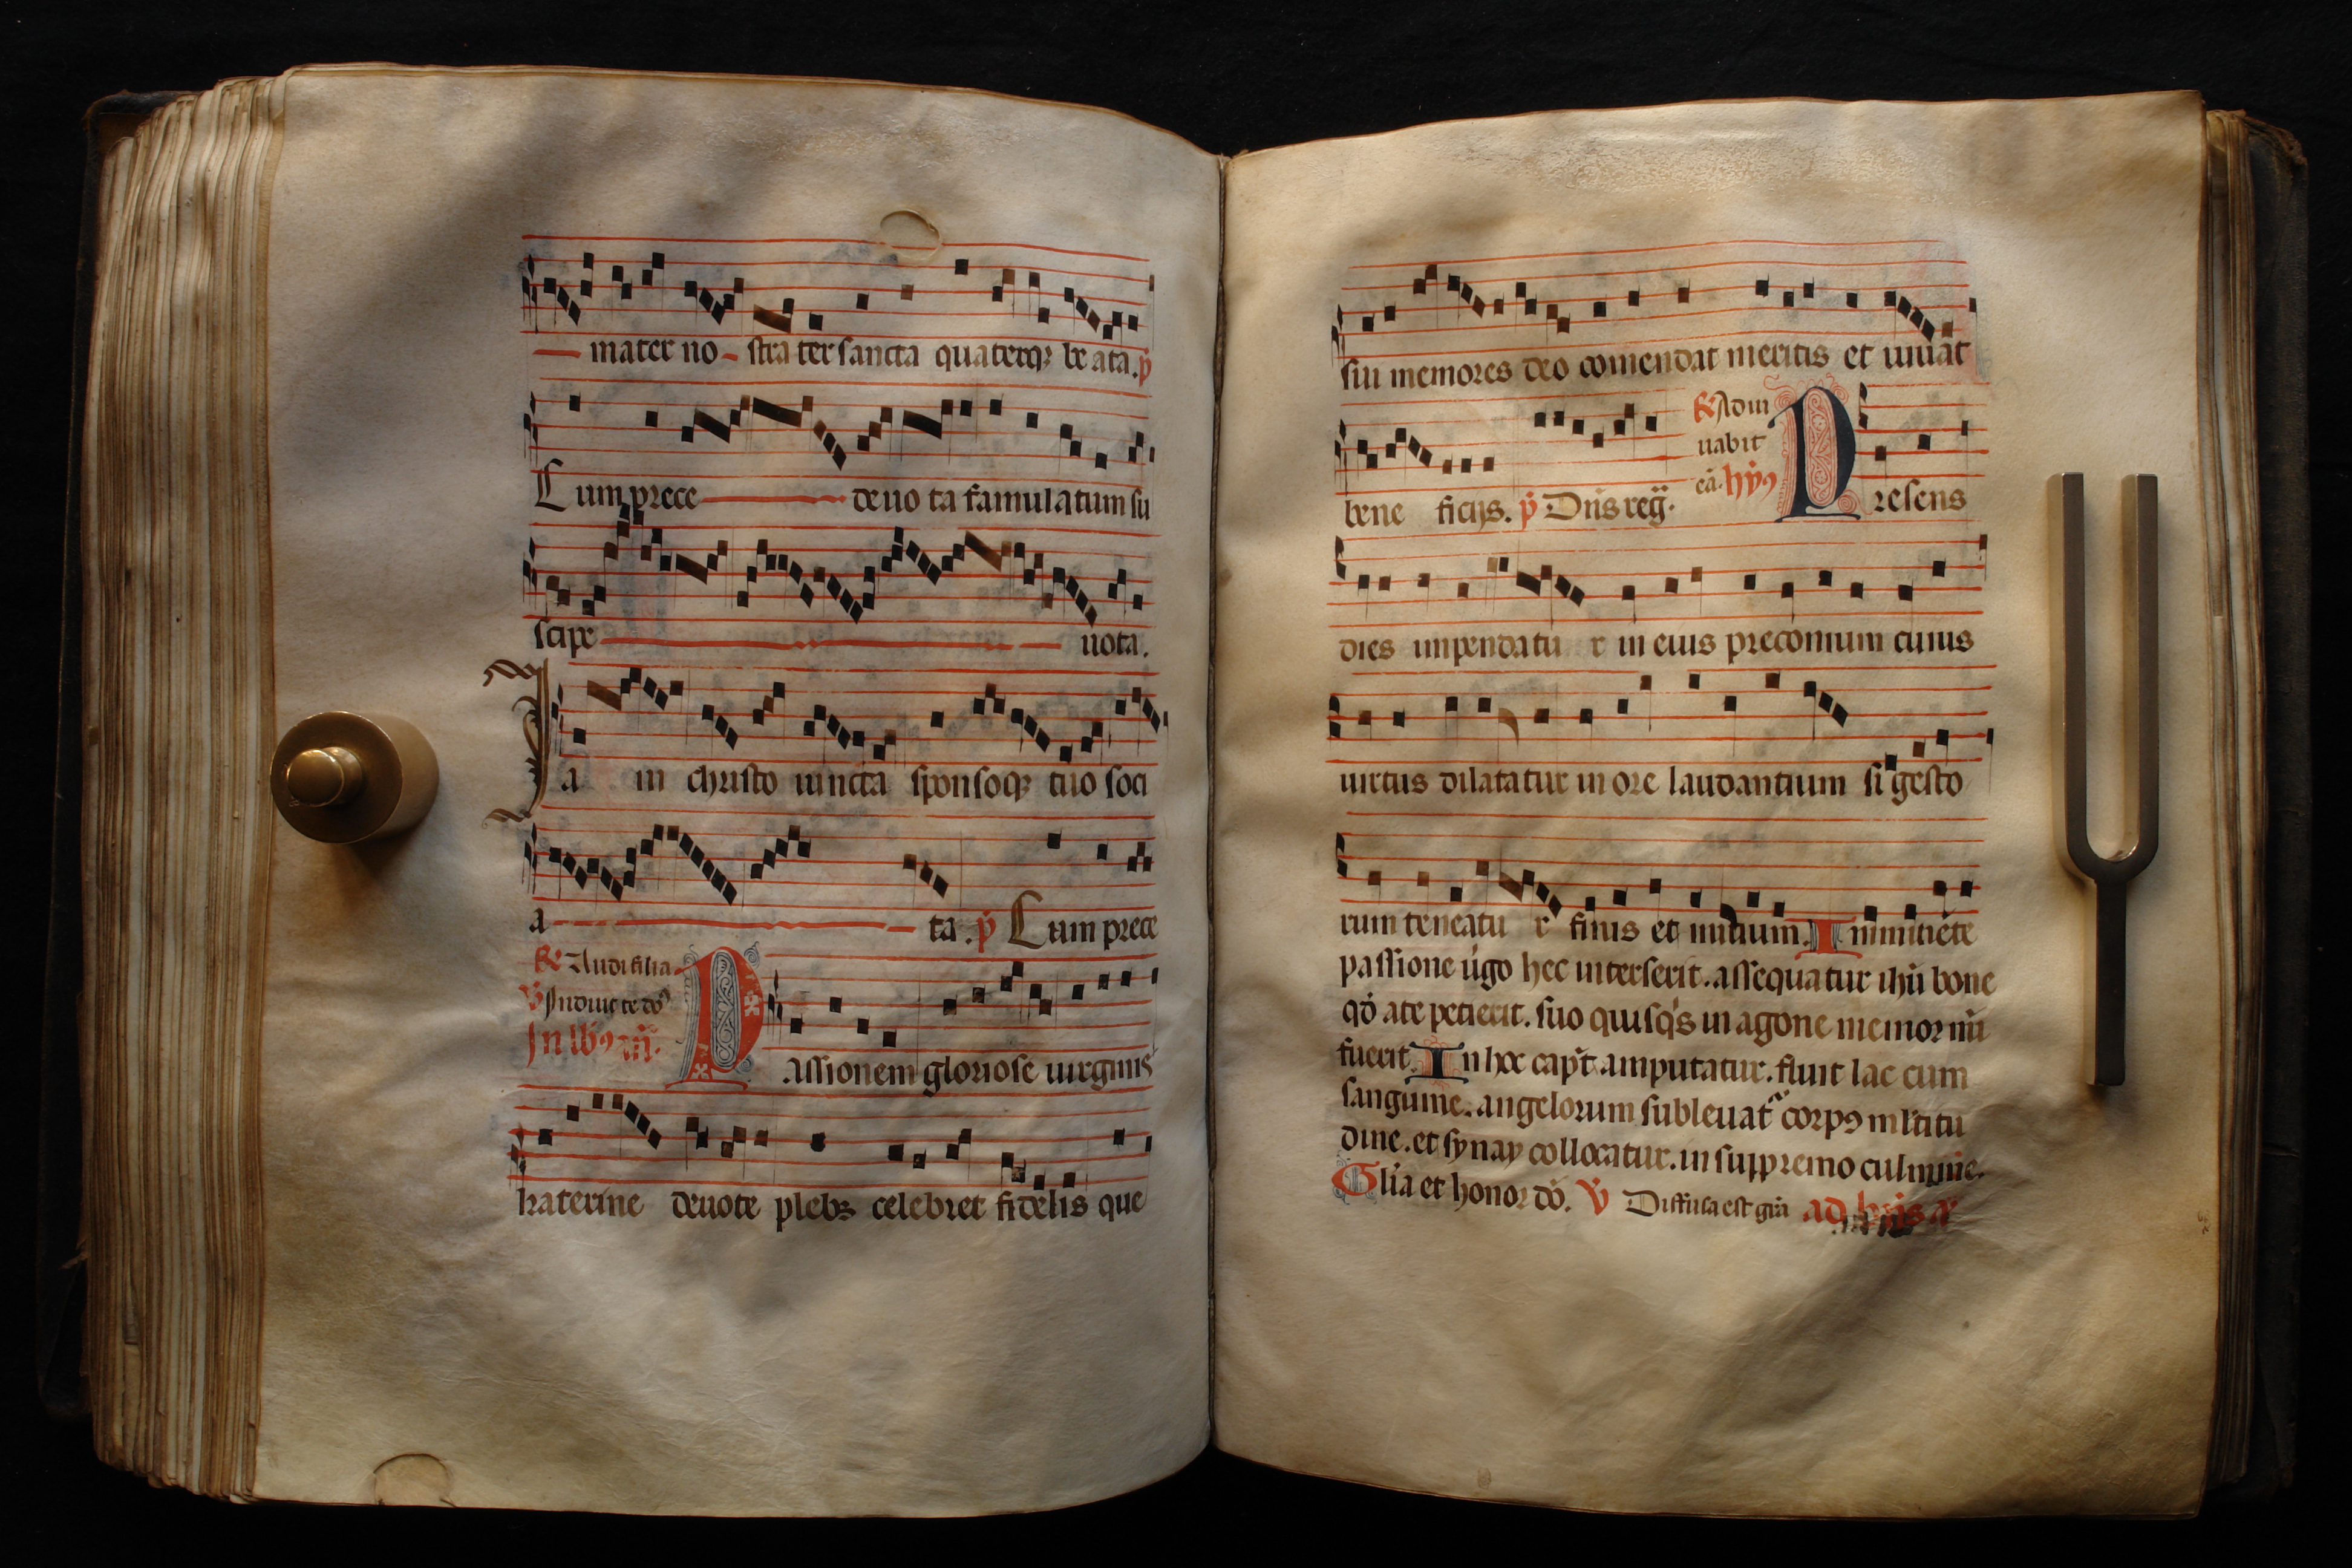 mater no - stra ter sancta quaterq; be ata. p̄
Cum prece deuo ta famulatum su
scipe uota.
Ia in christo iuncta sponsoq; tuo soci
a ta. p̄ Cum prece
℟ Audi filia
℣ Adiuuabit
In lb9
Passionem gloriose uirginis
katerine deuote plebs celebret fidelis que
sui memores deo comendat meritis et iuuat
bene ficijs. p̄ Dn̄s reḡ.
℟ Adiu
uabit
eā. hȳ9
Presens
dies inpendatu r in eius preconium cuius
uirtus dilatatur in ore laudantium si gesto
rum teneatu r finis et initium. Inminēte
passione ūgo hec interserit. assequatur ihū bone
qđ a te petierit. suo quisq's in agone memor mī
fuerit. In hoc cap̄t amputatur. fluit lac cum
sanguine. angelorum subleuat' corp9 ml'titu
dine. et synay collocatur. in suppremo culmine.
Gl'ia et honor dō. ℣ Diffusa est grā ad